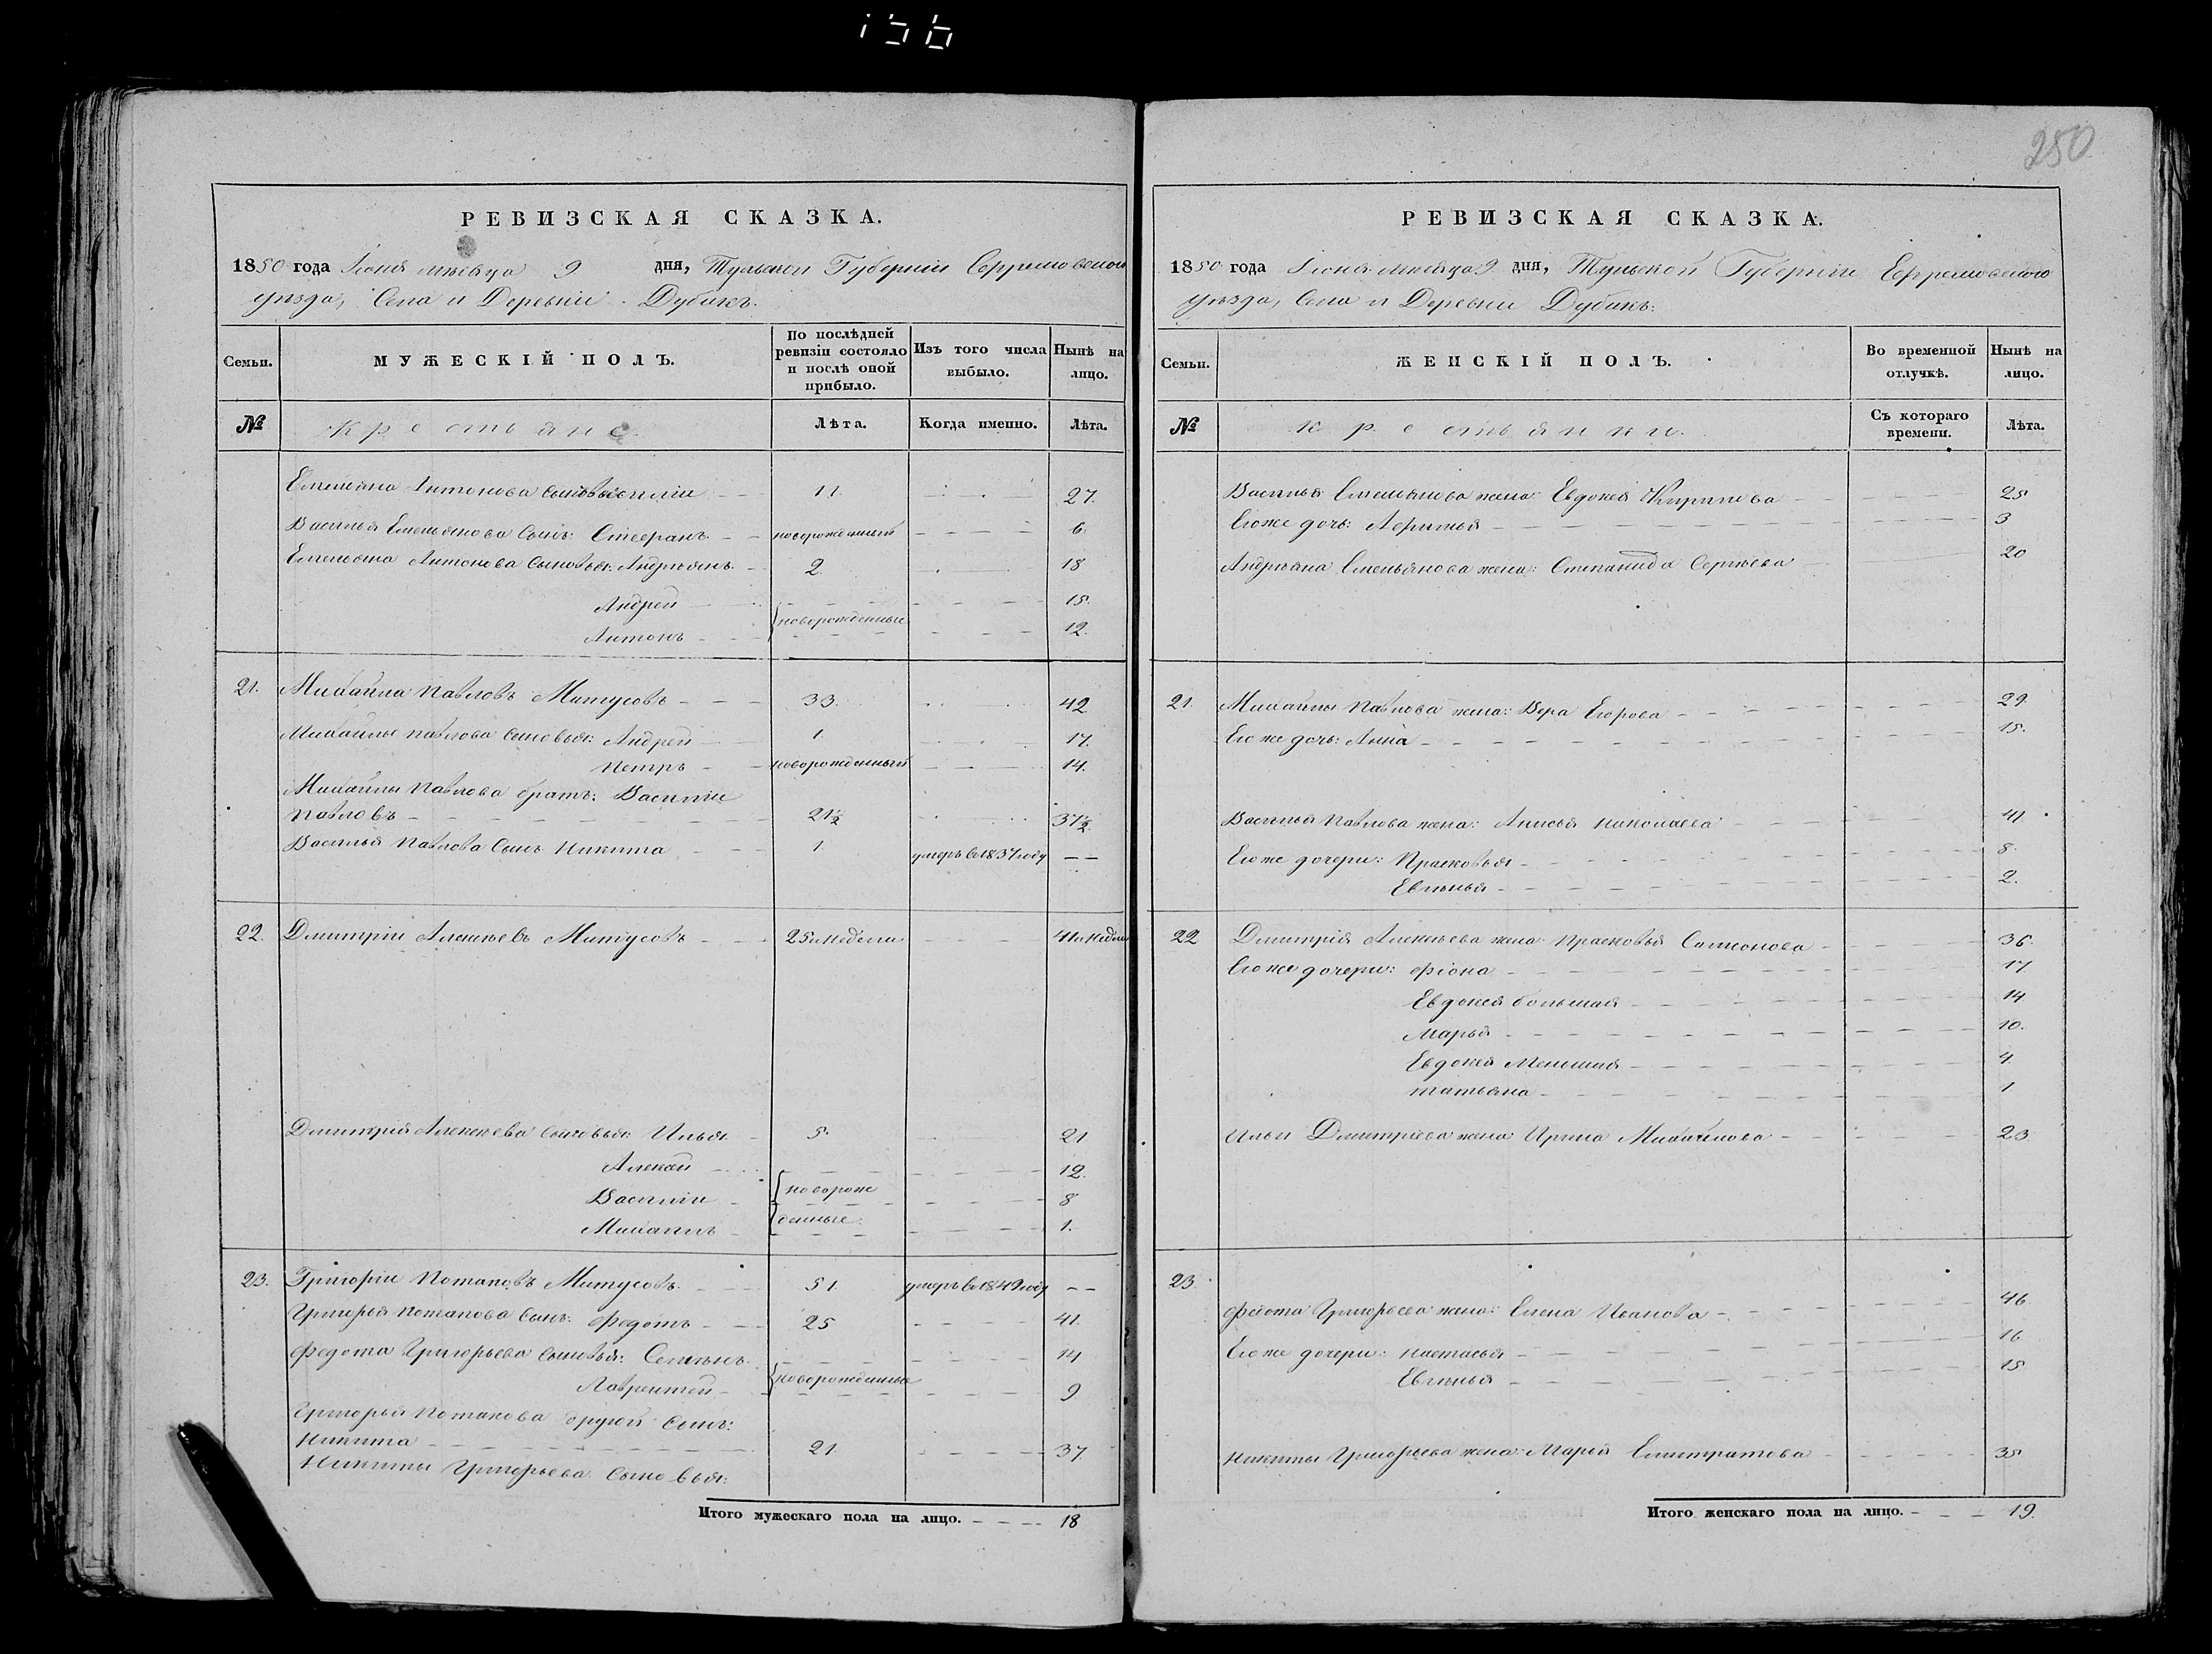 156
250
РЕВИЗСКАЯ СКАЗКА.
1850 года Іюня мѣсяца 9 дня, Тульской Губерніи Ефремовского
уѣзда, Села и Деревни Дубикъ.
Семьи.
МУЖЕСКІЙ ПОЛЪ.
По послѣдней ревизіи состояло и послѣ оной прибыло.
Изъ того числа выбыло.
Нынѣ на лицо.
№ Крестьяне. Лѣта. Когда именно. Лѣта.
Емельяна Антонова сыновья: Василій 11. 27.
Василья Емельянова сынъ: Стефранъ новорожденный 6.
Емельяна Антонова сыновья: Андріянъ 2 18
Андрей 15.
новорожденные
Антонъ 12.
21. Михайла Павловъ Митусовъ 33. 42
Михайлы Павлова сыновья: Андрей 1. 17.
Петръ новорожденный 14.
Михайлы Павлова братъ: Василій
Павловъ 21½ 37½
Василья Павлова сынъ Никита 1. умеръ в 1837 году
22. Дмитрій Алексѣевъ Митусовъ 25 и недели 41 и недели
Дмитрія Алексѣева сыновья: Илья 5. 21
Алексей 12.
новорож
Василій 8
денные
Михаилъ 1.
23. Григорій Потаповъ Митусовъ 51. умеръ в 1842 году
Григорья Потапова сынъ: Федотъ 25 41.
Федота Григорьева сыновья: Семенъ 14
новорожденные
Лаврентей 9
Григорья Потапова другой сынъ:
Никита 21. 37.
Никиты Григорьева сыновья:
Итого мужескаго пола на лицо. 18
РЕВИЗСКАЯ СКАЗКА.
1850 года Іюня мѣсяца 9 дня, Тульской Губерніи Ефремовского
уѣзда, Села и Деревни Дубикъ:
Семьи.
ЖЕНСКІЙ ПОЛЪ.
Во временной отлучкѣ.
Нынѣ на лицо.
№ Крестьянки. Съ котораго времени. Лѣта.
Василья Емельянова жена: Евдокея Кирилова 25
Его же дочь: Афимья 3
Андріяна Емельянова жена: Степанида Сергѣева 20
21. Михайлы Павлова жена: Вера Егорова 29.
Его же дочь: Анна 15.
Василья Павлова жена: Анисья Николаева 41
Его же дочери: Прасковья 8.
Евгѣнья 2.
22 Дмитрія Алексѣева жена: Прасковья Самсонова 36.
Его же дочери: Фіона 17
Евдокея большая 14
Марья 10.
Евдокея Меншая 4.
Татьяна 1
Ильи Дмитріева жена Ирина Михайлова 23
23
Федота Григорьева жена: Елена Иванова 46
Его же дочери: Настасья 16
Евгѣнья 15
Никиты Григорьева жена: Марья 35
Итого женскаго пола на лицо. 19.